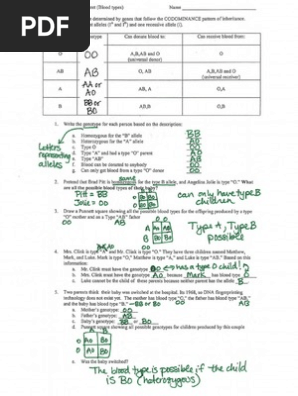 PDF
(Blood types) Name
determined by genes that follow the CODOMINANCE pattern of inheritance.
and one recessive allele (i).
Can donate blood to: Can receive blood from:
O OO A,B,AB and O O
(universal donor)
AB AB O, AB A,B,AB and O
(universal receiver)
A AA or AO AB, A O,A
B BB or BO AB,B O,B
1. Write the genotype for each person based on the description:
a. Homozygous for the "B" allele BB
b. Heterozygous for the "A" allele AO
c. Type O OO
d. Type "A" and had a type "O" parent AO
e. Type "AB" AB
f. Blood can be donated to anybody OO
g. Can only get blood from a type "O" donor OO
Letters
representing
alleles
2. Pretend that Brad Pitt is homozygous for the type B allele, and Angelina Jolie is type "O." What
are all the possible blood types of their baby?
same
Pitt = BB
Jolie = OO
B B
O BO BO
O BO BO
can only have type B
children
3. Draw a Punnett square showing all the possible blood types for the offspring produced by a type
"O" mother and an a Type "AB" father
OO AB
A B
O AO BO
O AO BO
Type A, Type B
possible
4. Mrs. Clink is type "A" and Mr. Clink is type "O." They have three children named Matthew,
Mark, and Luke. Mark is type "O," Matthew is type "A," and Luke is type "AB." Based on this
information:
a. Mr. Clink must have the genotype OO
b. Mrs. Clink must have the genotype AO because Mark has blood type O
c. Luke cannot be the child of these parents because neither parent has the allele B
5. Two parents think their baby was switched at the hospital. Its 1968, so DNA fingerprinting
technology does not exist yet. The mother has blood type "O," the father has blood type "AB,"
and the baby has blood type "B."
a. Mother's genotype: OO
b. Father's genotype: AB
c. Baby's genotype: BB or BO
d. Punnett square showing all possible genotypes for children produced by this couple
e. Was the baby switched?
The blood type is possible if the child
is BO (heterozygous)